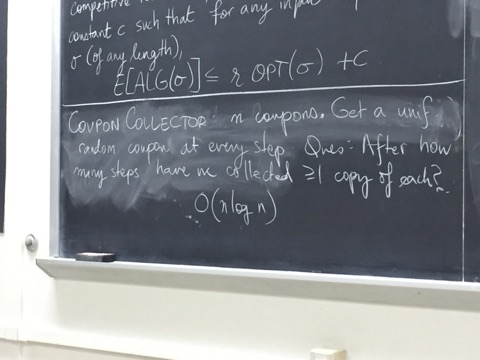 competitive
constant c such that for any input
σ (of any length),
E[ALG(σ)] ≤ r OPT(σ) + C
COUPON COLLECTOR: n coupons. Get a unif.
random coupon at every step. Ques: After how
many steps have we collected ≥1 copy of each?
O(n log n)